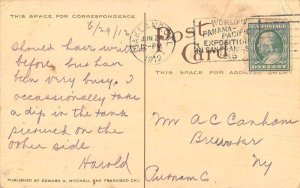 THIS SPACE FOR CORRESPONDENCE
6/29/12
should have writ
before, but have
been very busy. I
occassionally take
a dip in the tank
pictured on the
other side
Harold
PUBLISHED BY EDWARD H. MITCHELL SAN FRANCISCO CAL.
Post
Card
JUN 29
1912
WORLD'S
PANAMA-
PACIFIC
EXPOSITION
IN SAN FRANCISCO
1915
THIS SPACE FOR ADDRESS ONLY
Mr A C Canham
Brewster
Putnam Co. NY